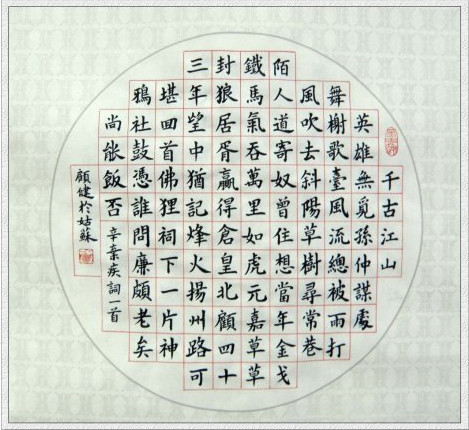 千古江山
英雄無覓孫仲謀處
舞榭歌臺風流總被雨打
風吹去斜陽草樹尋常巷
陌人道寄奴曾住想當年金戈
鐵馬氣吞萬里如虎元嘉草草
封狼居胥贏得倉皇北顧四十
三年望中猶記烽火揚州路可
堪回首佛狸祠下一片神
鴉社鼓憑誰問廉頗老矣
尚能飯否 辛棄疾詞一首
顧健於姑蘇